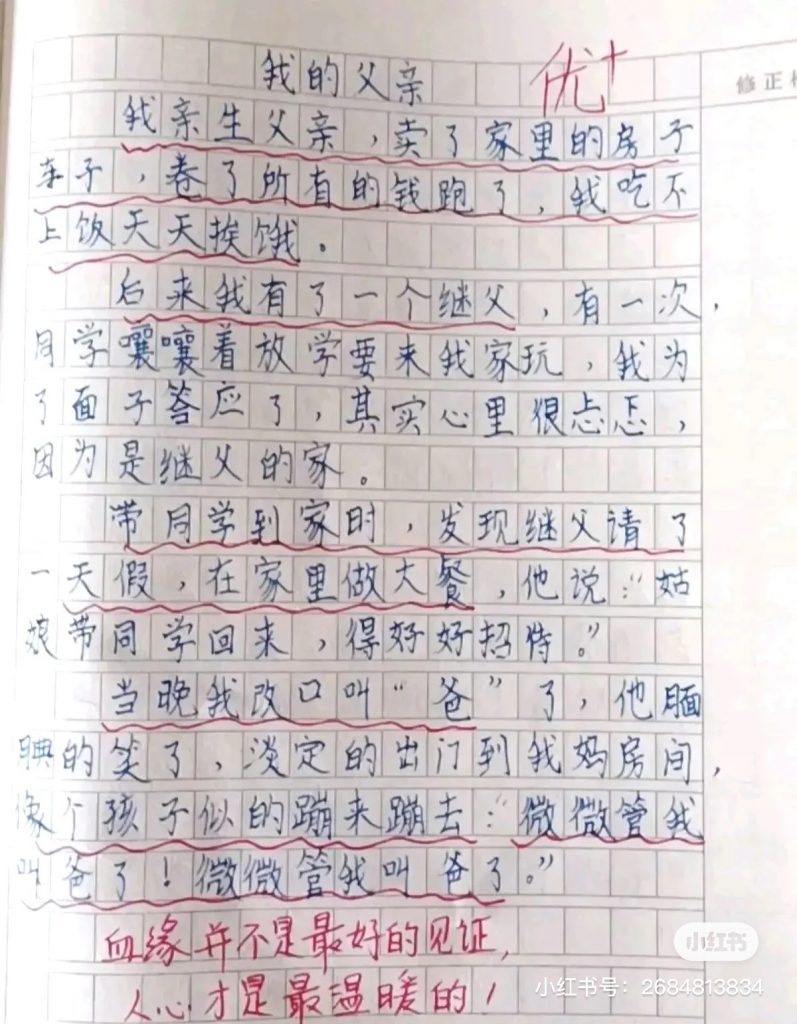 我的父亲
优+
修正
我亲生父亲，卖了家里的房子
车子，卷了所有的钱跑了，我吃不
上饭天天挨饿。
后来我有了一个继父，有一次，
同学嚷嚷着放学要来我家玩，我为
了面子答应了，其实心里很忐忑，
因为是继父的家。
带同学到家时，发现继父请了
一天假，在家里做大餐，他说：“姑
娘带同学回来，得好好招待。”
当晚我改口叫“爸”了，他腼
腆的笑了，淡定的出门到我妈房间，
像个孩子似的蹦来蹦去：“微微管我
叫爸了！微微管我叫爸了。”
血缘并不是最好的见证，
人心才是最温暖的！
小红书
小红书号：2684813834